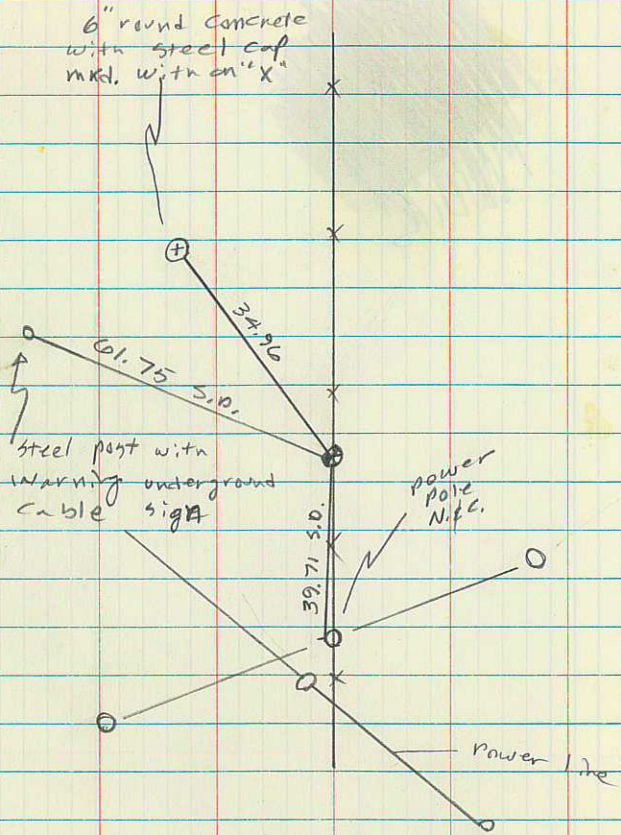 6" round concrete
with steel cap
mkd. with an "X"
34.96
61.75 S.D.
steel post with
warning underground
cable sign
power
pole
N.&C.
39.71 S.D.
power line